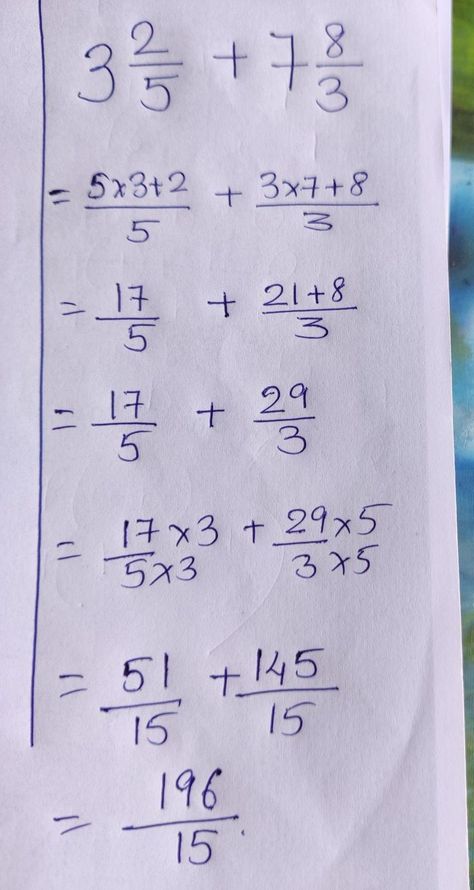 3 2/5 + 7 8/3
= 5×3+2/5 + 3×7+8/3
= 17/5 + 21+8/3
= 17/5 + 29/3
= 17×3/5×3 + 29×5/3×5
= 51/15 + 145/15
= 196/15.